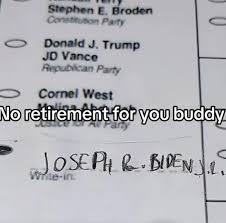 Terry
Stephen E. Broden
Constitution Party
Donald J. Trump
JD Vance
Republican Party
Cornel West
No retirement for you buddy
Justice for All Party
JOSEPH R. BIDEN J.R.
Write-in: